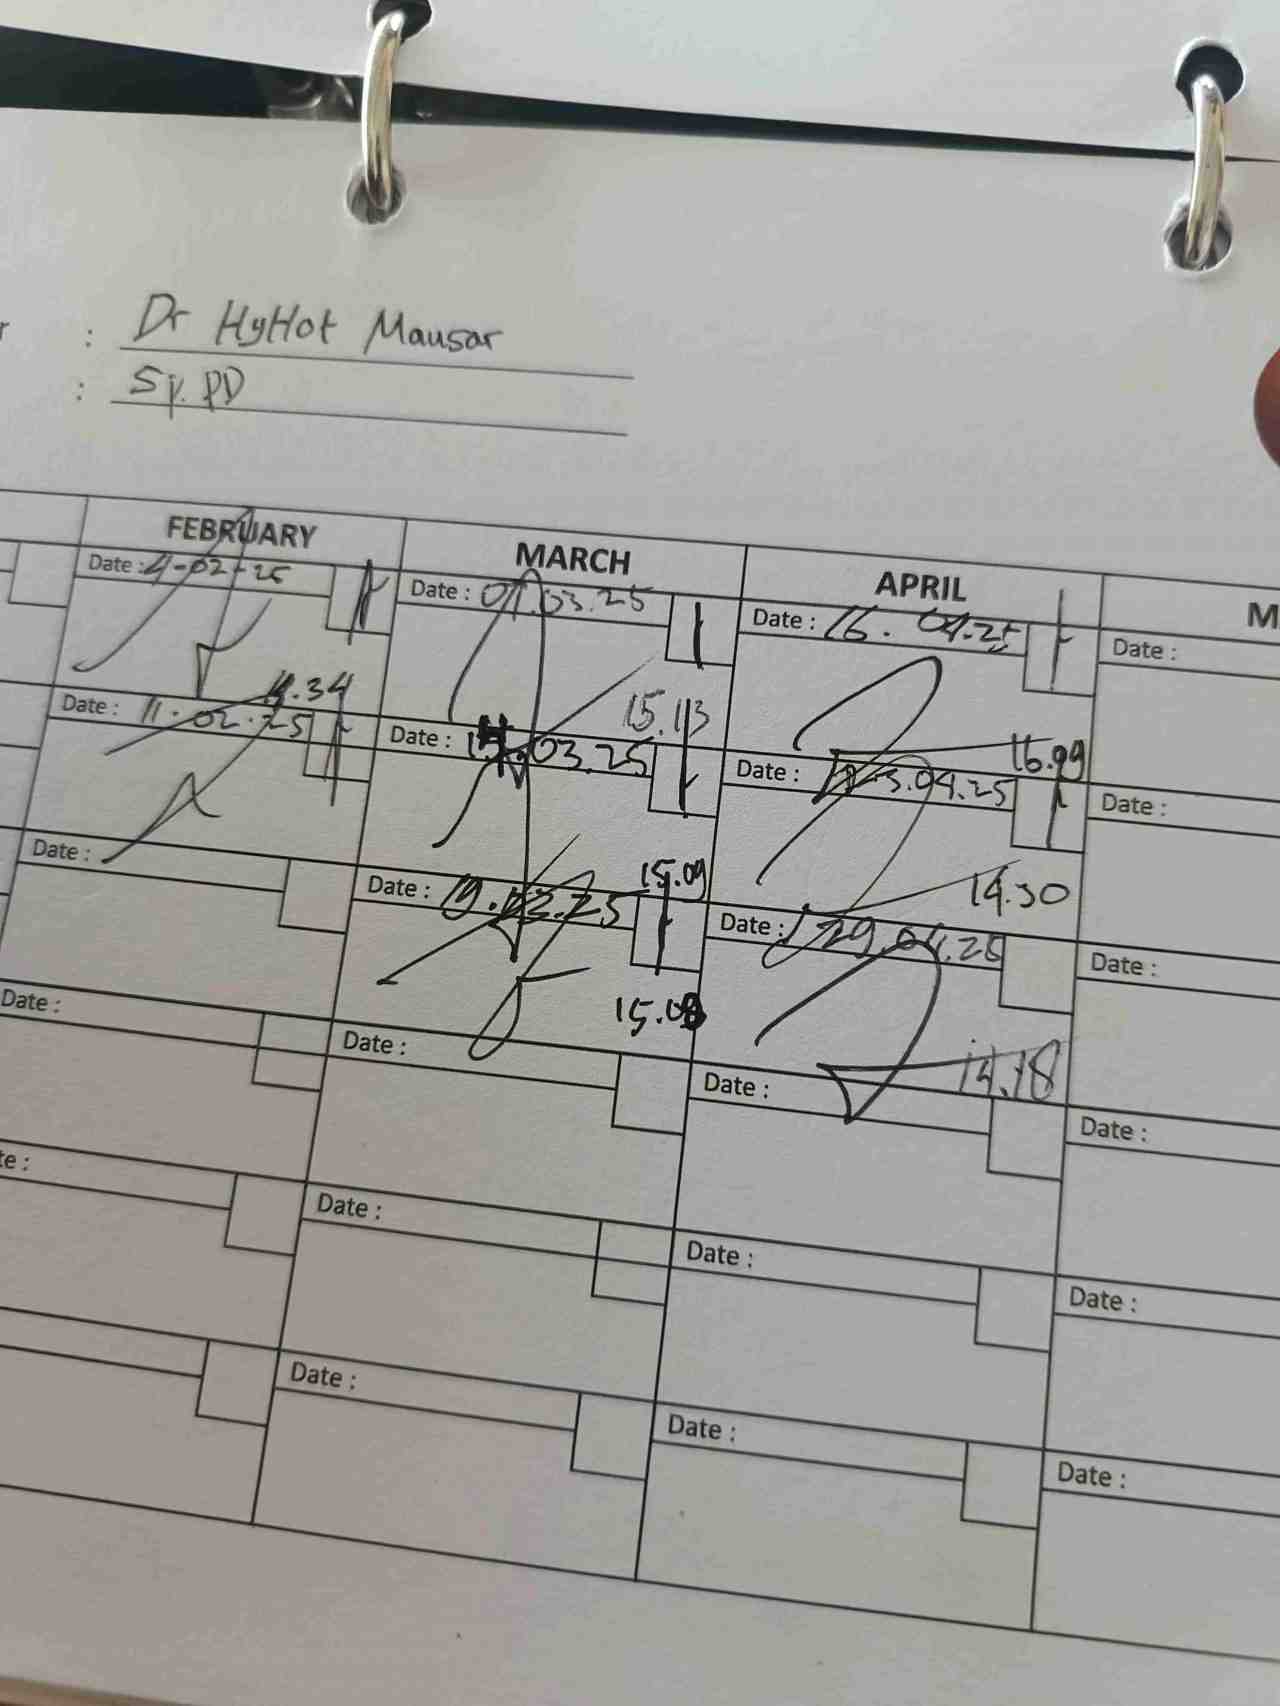 r : Dr HyHot Mausar
: Sp. PD
FEBRUARY MARCH APRIL M
Date : 4-02-25 Date : 07.03.25 Date : 16.04.25 Date :
11.34 15.13 16.99
Date : 11.02.25 Date : 15.03.25 Date : 23.04.25 Date :
15.09 14.30
Date : Date : 19.03.25 Date : 29.04.25 Date :
15.08 14.18
Date : Date : Date : Date :
te : Date : Date : Date :
Date : Date : Date :